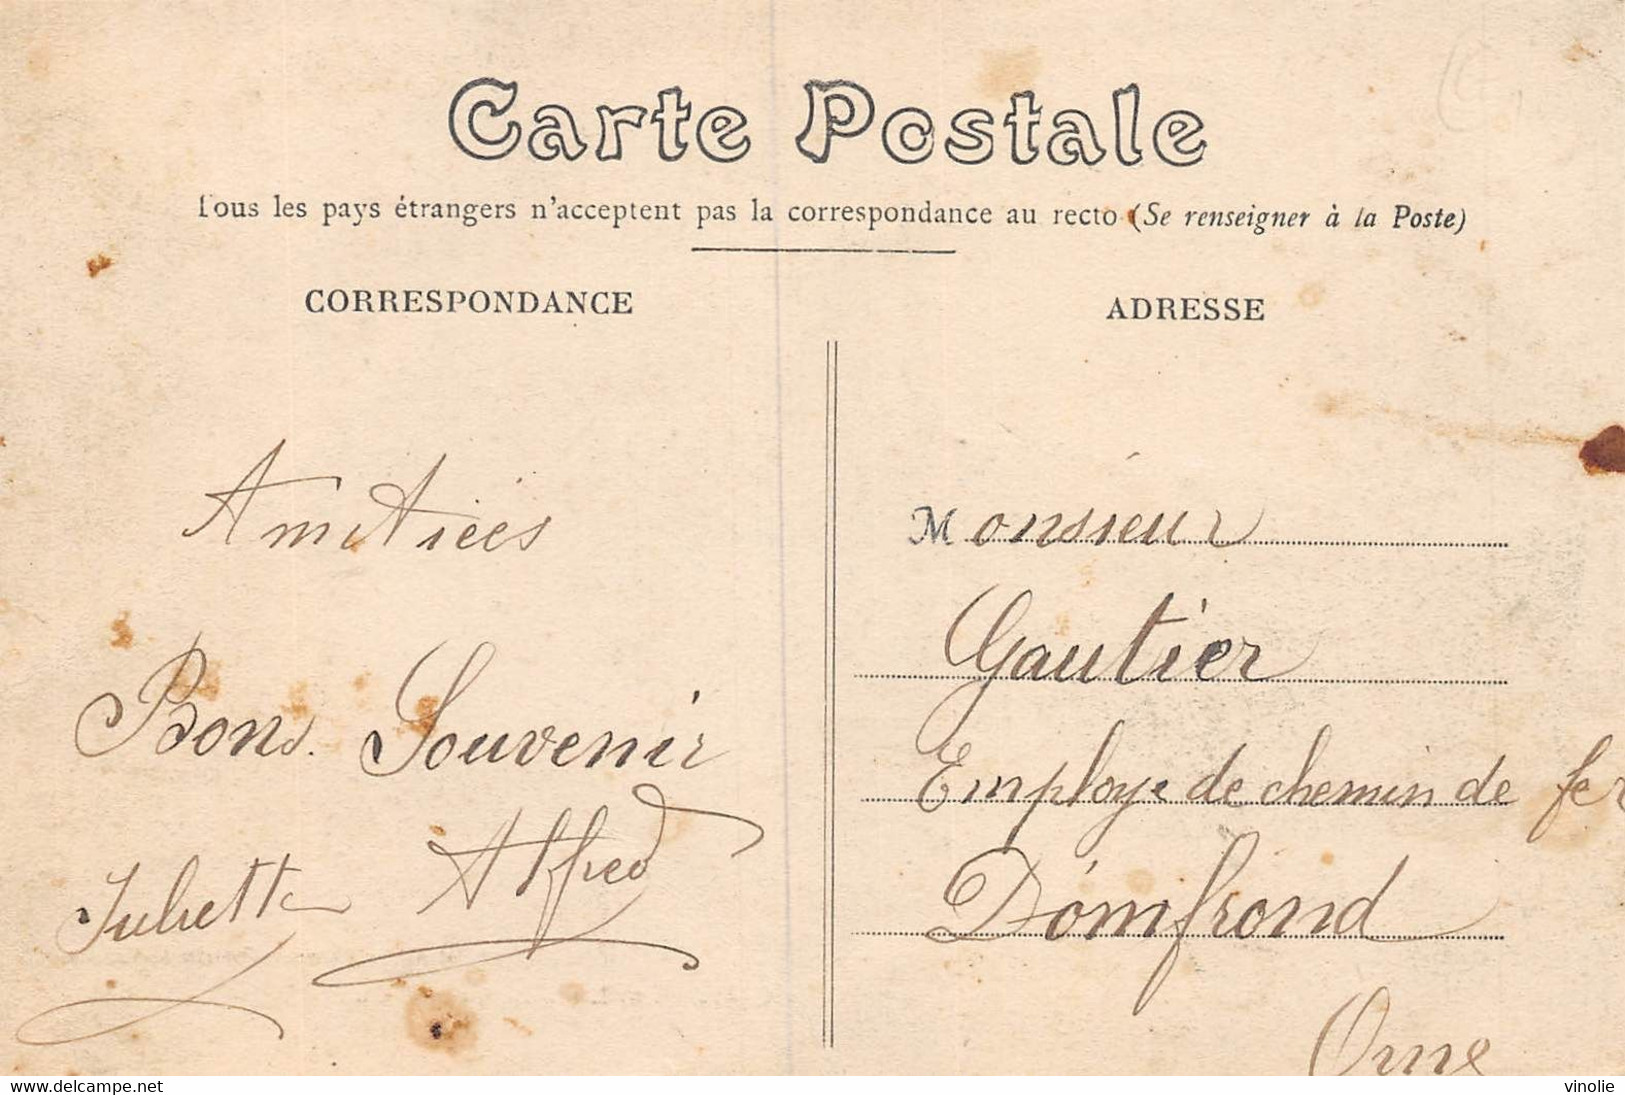 Carte Postale
Tous les pays étrangers n'acceptent pas la correspondance au recto (Se renseigner à la Poste)
CORRESPONDANCE
Amitiées
Bons Souvenir
Juliette Alfred
ADRESSE
Monsieur
Gautier
Employe de chemin de fer
Domfrond
Orne
www.delcampe.net
vinolie